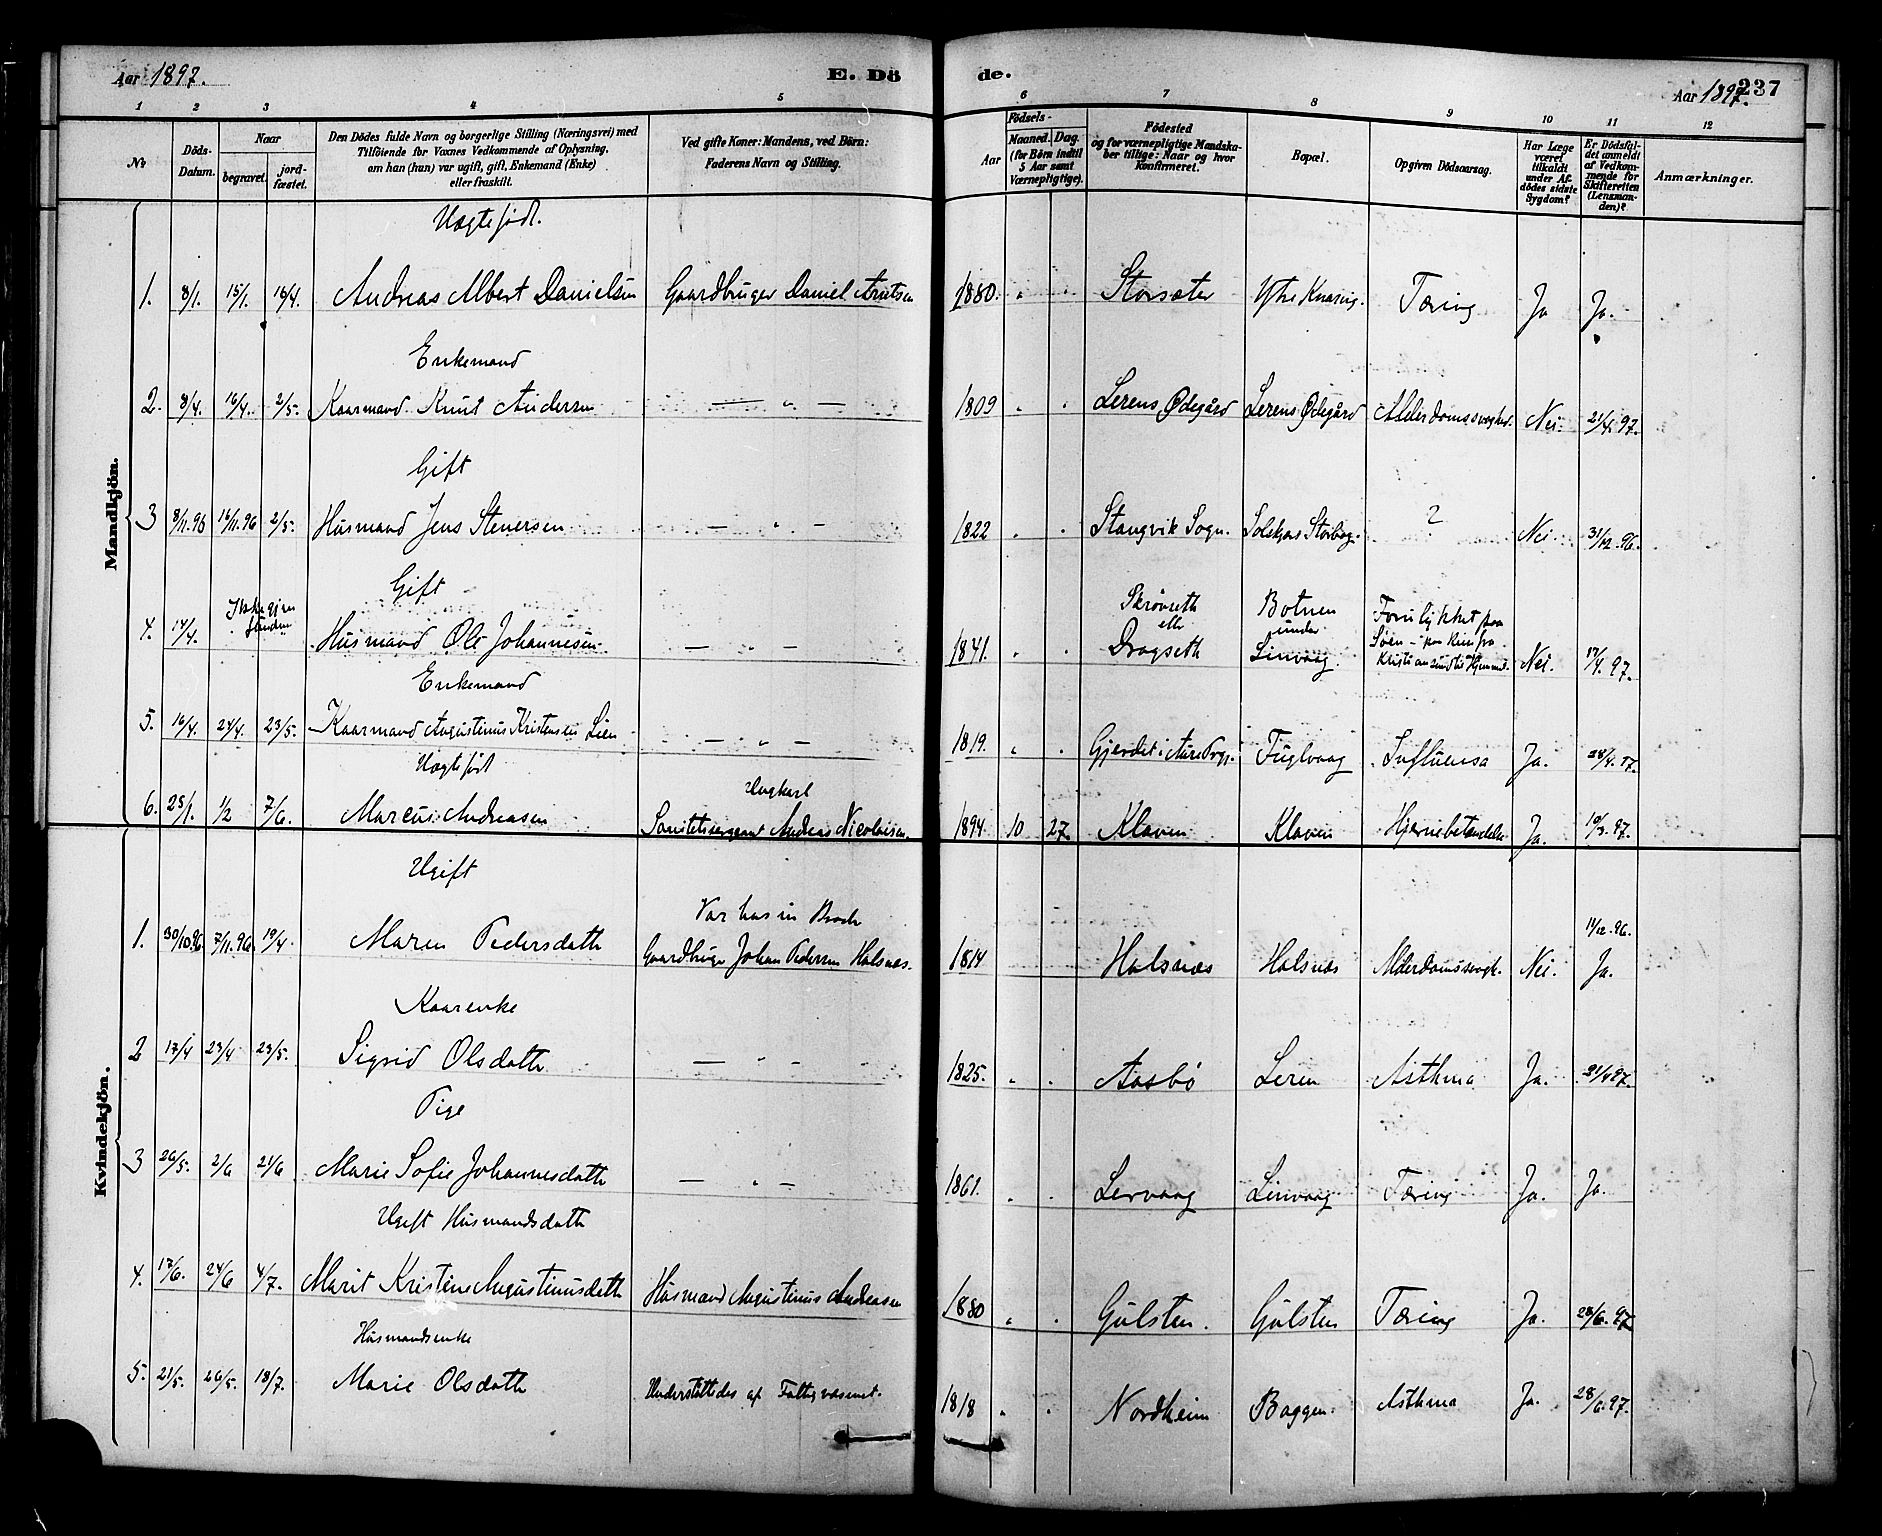 Aar 1897.
E. Dö
de.
Aar 1897.
237
1 2 3 4 5 6 7 8 9 10 11 12
No
Döds-
Datum.
Naar
begravet.
jord-
fæstet.
Den Dödes fulde Navn og borgerlige Stilling (Næringsvei) med
Tilföiende for Voxnes Vedkommende af Oplysning,
om han (hun) var ugift, gift, Enkemand (Enke)
eller fraskilt.
Ved gifte Koner: Mandens, ved Börn:
Faderens Navn og Stilling.
Födsels-
Aar
Maaned.
Dag.
(for Börn indtil
5 Aar samt
Værnepligtige).
Födested
og for værnepligtige Mandska-
ber tillige: Naar og hvor
konfirmeret.
Bopæl.
Opgiven Dödsaarsag.
Har Læge
været
tilkaldt
under Af-
dödes sidste
Sygdom?
Er Dödsfal-
det anmeldt
af Vedkom-
mende for
Skifteretten
(Lensman-
den)?
Anmærkninger.
Mandkjön.
Uægtefødt.
1. 8/1. 15/1. 18/4. Andreas Albert Danielsen Gaardbruger Daniel 1880. Storsæter Ytre Tæring Ja Ja.
Enkemand
2. 8/4. 16/4. 2/5. Kaarmand Knut Andersen — " — 1809 Lerens Ødegård Lerens Ødegård Alderdomssvaghed. Nei. 21/4. 97.
Gift
3 8/11.96 16/11.96 2/5. Husmand Jens Stenersen — " — 1822 Stangvik Sogn. ? Nei. 31/12.96.
Gift
4. 14/4. Husmand Ole Johannesen — " — 1841. Skrøvseth
eller
Dragseth
Botnen
under
Linvaag
Forulykket paa
Søen - paa Reise fra
Kristiansund til Hjemmet.
Nei. 17/4. 97.
Enkemand
5. 16/4. 24/4. 23/5. Kaarmand Augustinus Kristensen Lien — " — 1819. Gjerdet i Aure Fuglvaag Influensa Ja. 28/4. 97.
Uægtefødt
Ungkarl
6. 25/1. 1/2 7/6. Marcus Andreasen Andreas Nicolaisen. 1894 10 27. Klaven Klaven Hjernebetændelse Ja. 10/3. 97.
Kvindekjön.
Ugift
Var hos sin Broder
1. 30/10.96. 7/11.96. 19/4. Maren Pedersdatter Gaardbruger Johan Pedersen Halsnæs. 1814 Halsnæs Halsnæs Alderdomssvagh. Nei. 11/12. 96.
Ja.
Kaarenke
2 17/4 23/4 23/5. Sigrid Olsdatter — " — 1825. Aasbø Leren Asthma Ja. 21/4 97.
Pige
3 26/5. 2/6 21/6 Marie Sofie Johannesdatter — " — 1861. Lervaag Linvaag Tæring Ja. Ja.
Ugift Husmandsdatter
4. 17/6. 24/6 4/7. Marit Kristine Augustinusdatter Husmand Augustinus Andreasen 1880 Gulsten. Gulsten Tæring Ja. 28/6. 97
Husmandsenke
5. 21/5. 26/5. 18/7. Marie Olsdatter Understøttedes af Fattigvæsenet. 1818 Nordheim Baggen. Asthma Ja. 28/6. 97.